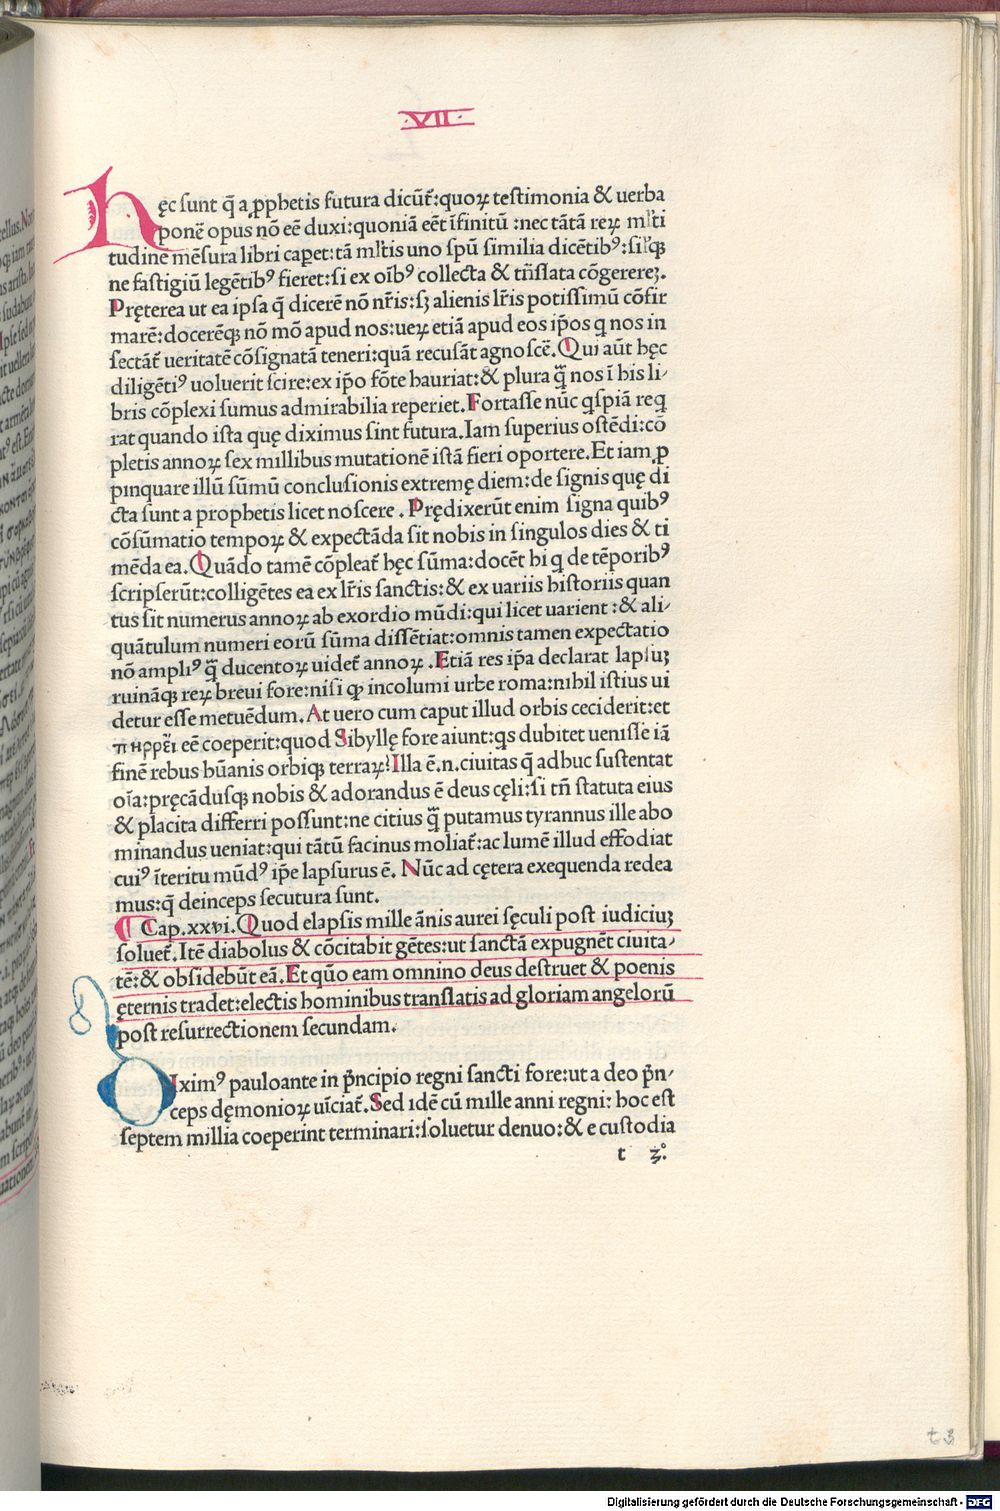 .VII.
Hęc sunt q̄ a ꝓphetis futura dicūt᷑:quoꝝ testimonia & uerba
ponē opus nō eē duxi:quoniā eēt īfinitū :nec tātā reꝝ ml̓ti
tudinē mēsura libri caperet:tā ml̓tis uno spū similia dicētibꝰ:sil̓q̨
ne fastigiū legētibꝰ fieret:si ex oībꝰ collecta & trāslata cōgererēꝫ.
Pręterea ut ea ipsa q̄ dicerē nō nr̄is:sꝫ alienis lr̄is potissimū cōfir
marē:docerēq̨ nō mō apud nos:ueꝝ etiā apud eos ip̄os q nos in
sectāt᷑ ueritatē cōsignatā teneri:quā recusāt agnoscē.Qui aūt hęc
diligētiꝰ uoluerit scire:ex ip̄o fōte hauriat:& plura q̄ nos ī his li⸗
bris cōplexi sumus admirabilia reperiet.Fortasse nūc qspiā req
rat quando ista quę diximus sint futura.Iam superius ostēdi:cō
pletis annoꝝ sex millibus mutationē istā fieri oportere.Et iam ꝓ
pinquare illū sūmū conclusionis extremę diem:de signis quę di
cta sunt a prophetis licet noscere .Prędixerūt enim signa quibꝰ
cōsūmatio tempoꝝ & expectāda sit nobis in singulos dies & ti
mēda ea.Quādo tamē cōpleat᷑ hęc sūma:docēt hi q de tēporibꝰ
scripserūt:colligētes ea ex lr̄is sanctis:& ex uariis historiis quan
tus sit numerus annoꝝ ab exordio mūdi:qui licet uarient :& ali⸗
quātulum numeri eorū sūma dissētiat:omnis tamen expectatio
nō ampliꝰ q̄ ducentoꝝ uidet᷑ annoꝝ .Etiā res ip̄a declarat lapsuꝫ
ruināq̨ reꝝ breui fore:nisi ꝙ incolumi urbe roma:nihil istius ui
detur esse metuēdum.At uero cum caput illud orbis ceciderit:et
πηρρεῖ eē coeperit:quod Sibyllę fore aiunt:qs dubitet uenisse iā
finē rebus hūanis orbiq̨ terraꝝ?Illa ē.n.ciuitas q̄ adhuc sustentat
oīa:pręcādusq̨ nobis & adorandus ē deus cęli:si tn̄ statuta eius
& placita differri possunt:ne citius q̄ putamus tyrannus ille abo
minandus ueniat:qui tātū facinus moliat᷑:ac lumē illud effodiat
cuiꝰ īteritu mūdꝰ ip̄e lapsurus ē. Nūc ad cętera exequenda redea
mus:q̄ deinceps secutura sunt.
¶ Cap.xxvi.Quod elapsis mille ānis aurei sęculi post iudiciuꝫ
soluet᷑.Itē diabolus & cōcitabit gētes:ut sanctā expugnēt ciuita⸗
tē:& obsidebūt eā.Et quō eam omnino deus destruet & poenis
ęternis tradet:electis hominibus translatis ad gloriam angelorū
post resurrectionem secundam.
DIximꝰ pauloante in p̄ncipio regni sancti fore:ut a deo p̄n⸗
ceps dęmonioꝝ uīciat᷑.Sed idē cū mille anni regni: hoc est
septem millia coeperint terminari:soluetur denuo:& e custodia
t 3.
t 3
Digitalisierung gefördert durch die Deutsche Forschungsgemeinschaft - DFG